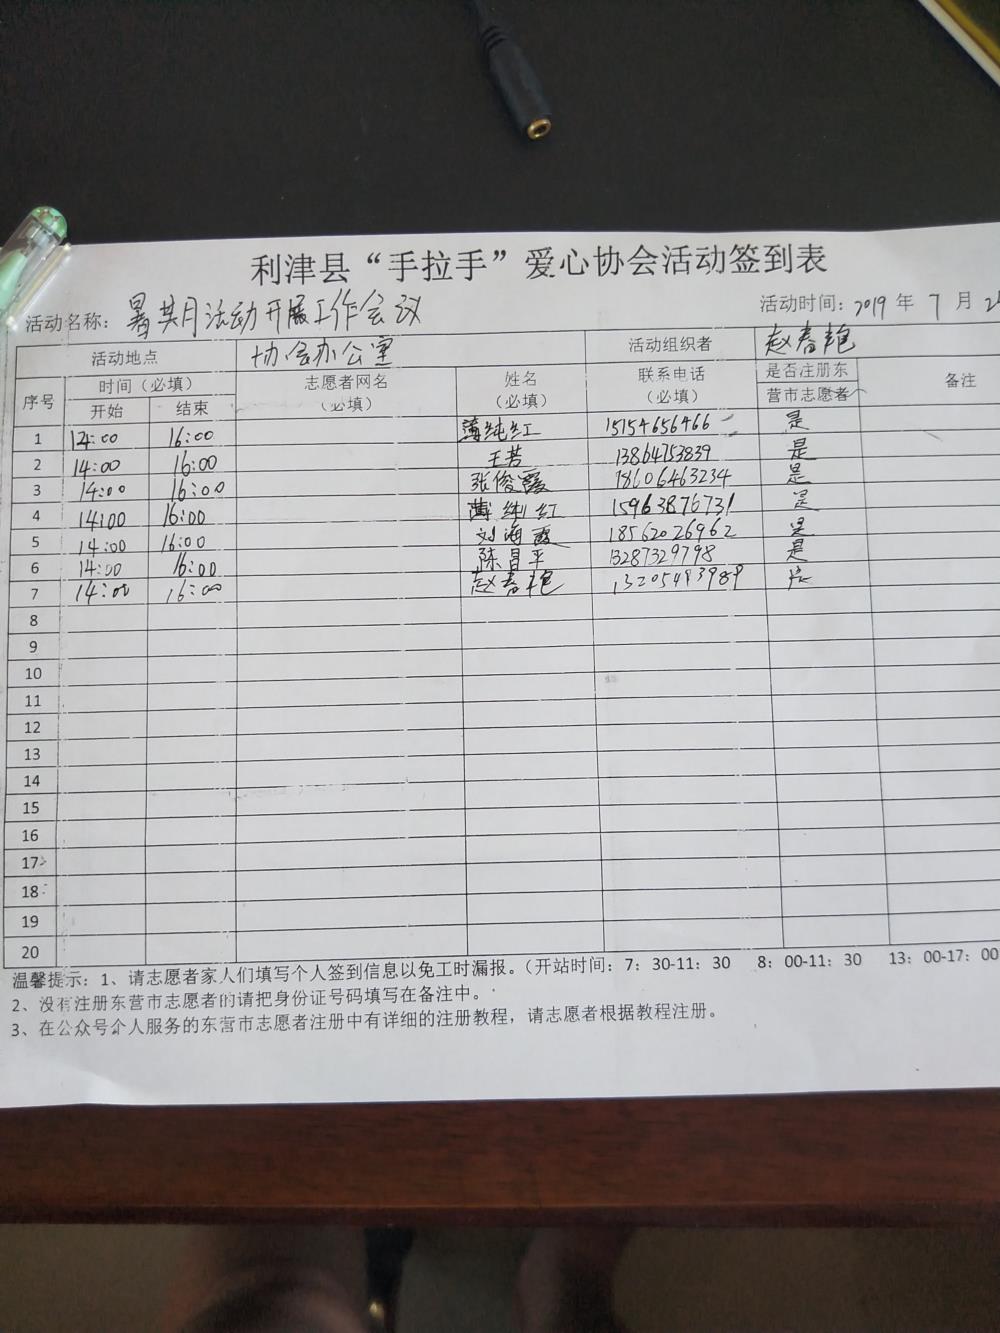 利津县“手拉手”爱心协会活动签到表
活动名称：暑其月活动开展工作会议 活动时间：2019 年 7 月
活动地点 协会办公室 活动组织者 赵春艳
序号 时间（必填） 志愿者网名（必填） 姓名（必填） 联系电话（必填） 是否注册东营市志愿者 备注
开始 结束
1 14:00 16:00 薄纯红 15154656466 是
2 14:00 16:00 王芳 13864753839 是
3 14:00 16:00 张俊霞 18606463234 是
4 14:00 16:00 薄纯红 15963876731 是
5 14:00 16:00 刘海霞 18562026962 是
6 14:00 16:00 陈昌平 13287329798 是
7 14:00 16:00 赵春艳 13205493989 是
8
9
10
11
12
13
14
15
16
17
18
19
20
温馨提示：1、请志愿者家人们填写个人签到信息以免工时漏报。（开站时间：7：30-11：30 8：00-11：30 13：00-17：00
2、没有注册东营市志愿者的请把身份证号码填写在备注中。
3、在公众号个人服务的东营市志愿者注册中有详细的注册教程，请志愿者根据教程注册。